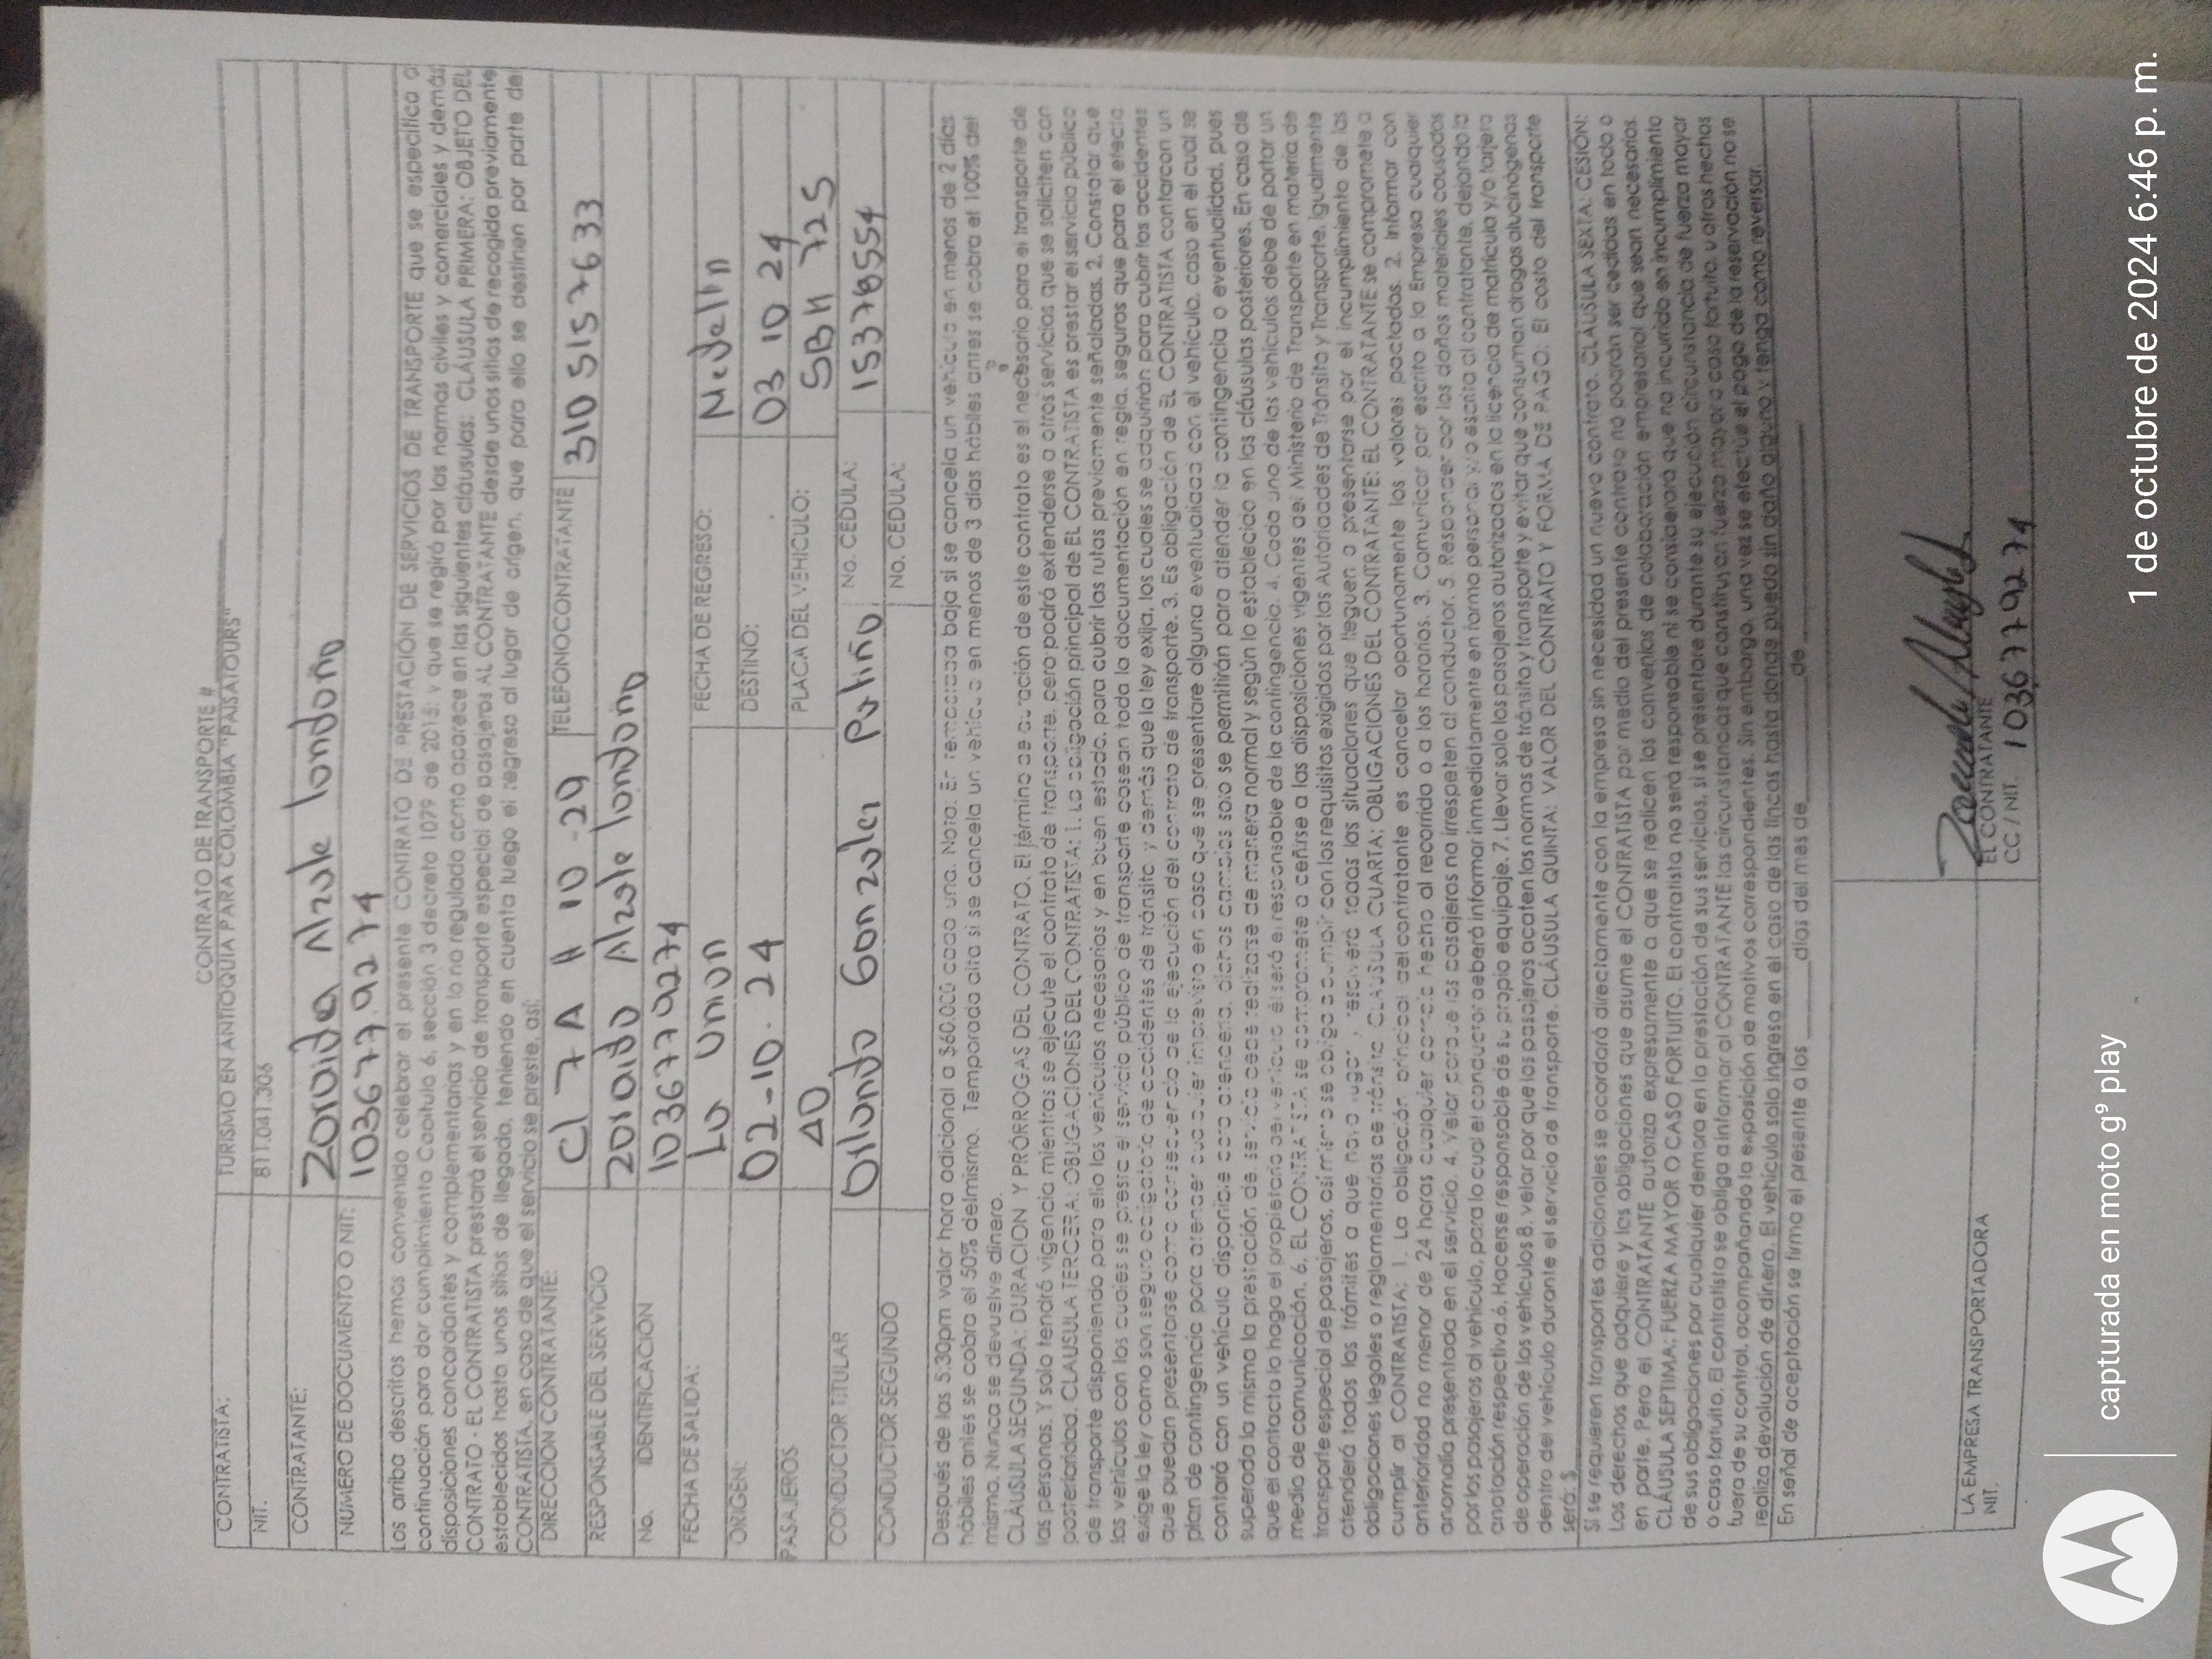 CONTRATO DE TRANSPORTE #
CONTRATISTA: TURISMO EN ANTIOQUIA PARA COLOMBIA "PAISATOURS"
NIT. 811.041.306
CONTRATANTE: Zoraida Alzate londoño
NUMERO DE DOCUMENTO O NIT: 1036779274
Los arriba descritos hemos convenido celebrar el presente CONTRATO DE PRESTACIÓN DE SERVICIOS DE TRANSPORTE que se especifica a
continuación para dar cumplimiento Capitulo 6, sección 3 decreto 1079 de 2015; y que se regirá por las normas civiles y comerciales y demás
disposiciones concordantes y complementarias y en lo no regulado como aparece en las siguientes cláusulas: CLÁUSULA PRIMERA: OBJETO DEL
CONTRATO - EL CONTRATISTA prestará el servicio de transporte especial de pasajeros AL CONTRATANTE desde unos sitios de recogida previamente
establecidos hasta unos sitios de llegada, teniendo en cuenta luego el regreso al lugar de origen, que para ello se destinen por parte del
CONTRATISTA, en caso de que el servicio se preste, así:
DIRECCION CONTRATANTE: Cl 7 A # 10 -29 TELEFONOCONTRATANTE 310 515 76 33
RESPONSABLE DEL SERVICIO zoraida Alzate londoño
No. IDENTIFICACION 1036779274
FECHA DE SALIDA: La Union FECHA DE REGRESO: Medellin
ORIGEN: 02-10-24 DESTINO: 03 10 24
PASAJEROS 40 PLACA DEL VEHICULO: SBH 725
CONDUCTOR TITULAR Orlando Gonzalez Patiño NO. CÉDULA: 15378554
CONDUCTOR SEGUNDO NO. CÉDULA:
Después de las 5:30pm valor hora adicional a $60.000 cada una. Nota: En temporada baja si se cancela un vehículo en menos de 2 días
hábiles antes se cobra el 50% del mismo. Temporada alta si se cancela un vehículo en menos de 3 días hábiles antes se cobra el 100% del
mismo. Nunca se devuelve dinero.
CLÁUSULA SEGUNDA: DURACION Y PRÓRROGAS DEL CONTRATO. El término de duración de este contrato es el necesario para el transporte de
las personas. Y solo tendrá vigencia mientras se ejecute el contrato de transporte, pero podrá extenderse a otros servicios que se soliciten con
posterioridad. CLAUSULA TERCERA: OBLIGACIONES DEL CONTRATISTA: 1. La obligación principal de EL CONTRATISTA es prestar el servicio público
de transporte disponiendo para ello los vehículos necesarios y en buen estado, para cubrir las rutas previamente señaladas. 2. Constatar que
los vehículos con los cuales se presta el servicio público de transporte posean toda la documentación en regla, seguros que para el efecto
exige la ley como son seguro obligatorio de accidentes de tránsito y demás que la ley exija, los cuales se adquirirán para cubrir los accidentes
que puedan presentarse como consecuencia de la ejecución del contrato de transporte. 3. Es obligación de EL CONTRATISTA contar con un
plan de contingencia para atender cualquier imprevisto en caso que se presentare alguna eventualidad con el vehículo, caso en el cual se
contará con un vehículo disponible para atenderla, dichos cambios solo se permitirán para atender la contingencia o eventualidad, pues
superada la misma la prestación de servicio debe realizarse de manera normal y según lo establecido en las cláusulas posteriores. En caso de
que el contacto lo haga el propietario del vehículo él será el responsable de la contingencia. 4. Cada uno de los vehículos debe de portar un
medio de comunicación. 6. EL CONTRATISTA se compromete a ceñirse a las disposiciones vigentes del Ministerio de Transporte en materia de
transporte especial de pasajeros, así mismo se obliga a cumplir con los requisitos exigidos por las Autoridades de Tránsito y Transporte, igualmente
atenderá todos los trámites a que haya lugar y resolverá todas las situaciones que lleguen a presentarse por el incumplimiento de las
obligaciones legales o reglamentarias de tránsito. CLAUSULA CUARTA: OBLIGACIONES DEL CONTRATANTE: EL CONTRATANTE se compromete a
cumplir al CONTRATISTA: 1. La obligación principal del contratante es cancelar oportunamente los valores pactados. 2. Informar con
anterioridad no menor de 24 horas cualquier cambio hecho al recorrido o a los horarios. 3. Comunicar por escrito a la Empresa cualquier
anomalía presentada en el servicio. 4. Velar porque los pasajeros no irrespeten al conductor. 5. Responder por los daños materiales causados
por los pasajeros al vehículo, para lo cual el conductor deberá informar inmediatamente en forma personal y/o escrita al contratante, dejando la
anotación respectiva. 6. Hacerse responsable de su propio equipaje. 7. Llevar solo los pasajeros autorizados en la licencia de matrícula y/o tarjeta
de operación de los vehículos 8. velar por que los pasajeros acaten las normas de tránsito y transporte y evitar que consuman drogas alucinógenas
dentro del vehículo durante el servicio de transporte. CLÁUSULA QUINTA: VALOR DEL CONTRATO Y FORMA DE PAGO: El costo del transporte
será: $
Si se requieren transportes adicionales se acordará directamente con la empresa sin necesidad un nuevo contrato. CLÁUSULA SEXTA: CESIÓN:
Los derechos que adquiere y las obligaciones que asume el CONTRATISTA por medio del presente contrato no podrán ser cedidas en todo o
en parte. Pero el CONTRATANTE autoriza expresamente a que se realicen los convenios de colaboración empresarial que sean necesarios.
CLÁUSULA SEPTIMA: FUERZA MAYOR O CASO FORTUITO. El contratista no será responsable ni se considerará que ha incurrido en incumplimiento
de sus obligaciones por cualquier demora en la prestación de sus servicios, si se presentare durante su ejecución circunstancia de fuerza mayor
o caso fortuito. El contratista se obliga a informar al CONTRATANTE las circunstancias que constituyan fuerza mayor o caso fortuito, u otros hechos
fuera de su control, acompañando la exposición de motivos correspondientes. Sin embargo, una vez se efectúe el pago de la reservación no se
realiza devolución de dinero. El vehículo solo ingresa en el caso de las fincas hasta donde pueda sin daño alguno y tenga como reversar.
En señal de aceptación se firma el presente a los ______ días del mes de ____________ de ____________
LA EMPRESA TRANSPORTADORA EL CONTRATANTE
NIT. CC / NIT. 1036779274
capturada en moto g⁹ play
1 de octubre de 2024 6:46 p. m.